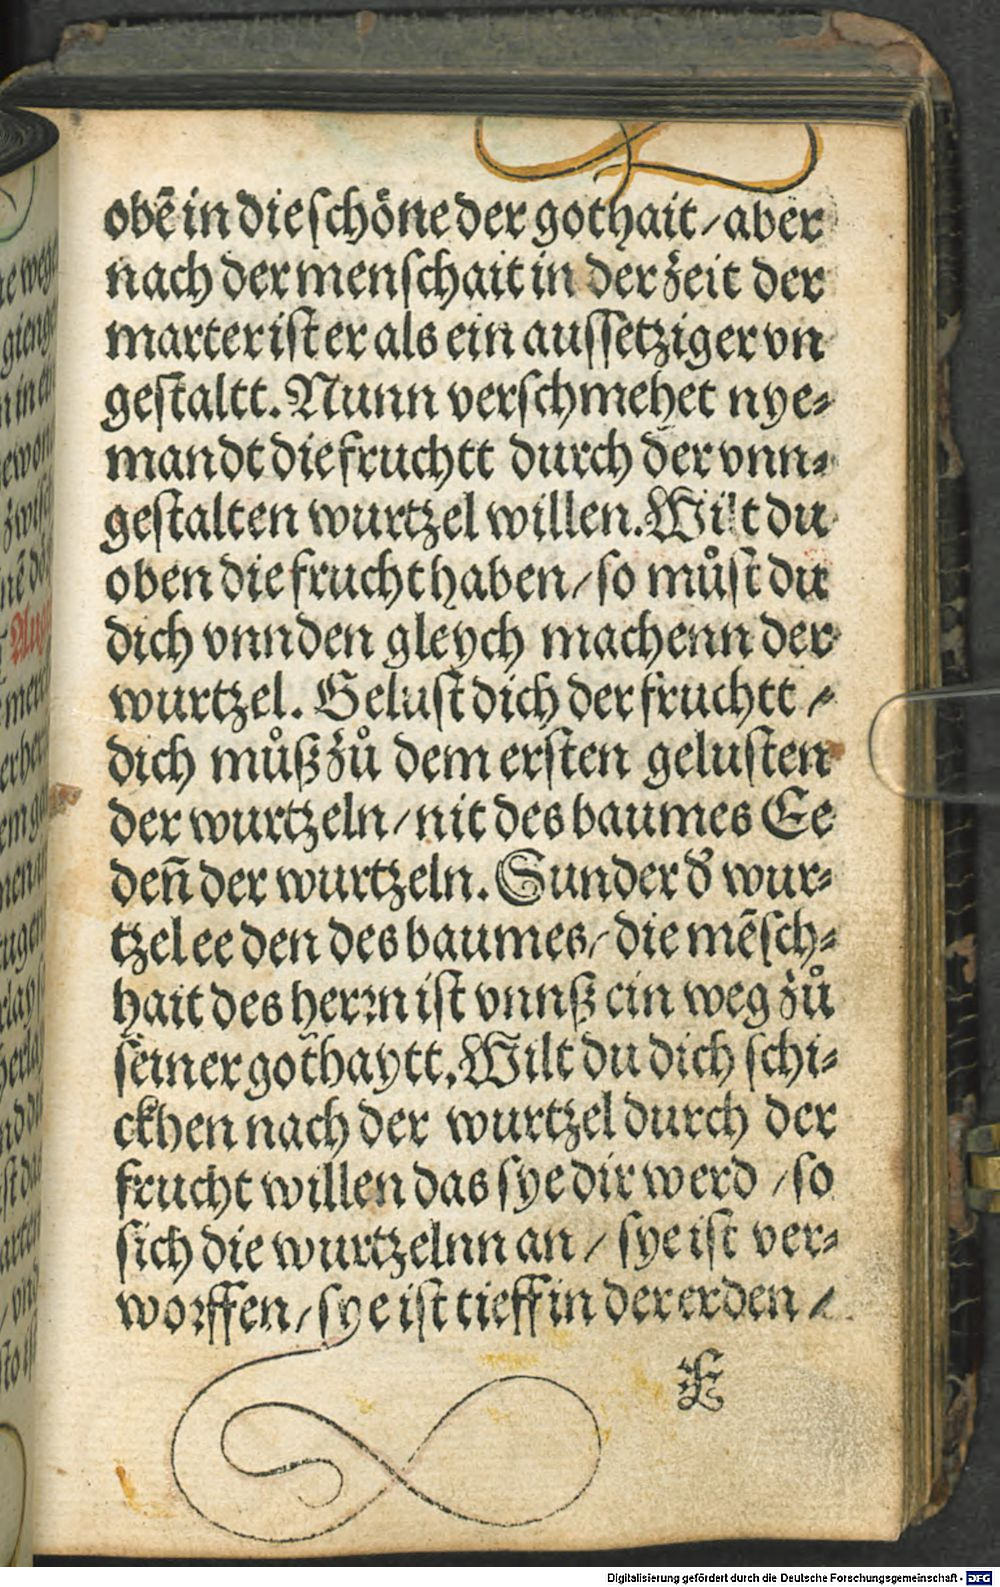 obē in die schöne der gothait / aber
nach der menschait in der zeit der
marter ist er als ein aussetziger vn
gestaltt. Nunn verschmehet nye⸗
mandt die fruchtt durch der vnn⸗
gestalten wurtzel willen. Wilt du
oben die frucht haben / so můst du
dich vnnden gleych machenn der
wurtzel. Gelust dich der fruchtt /
dich můß zů dem ersten gelusten
der wurtzeln / nit des baumes Ee
den̄ der wurtzeln. Sunder d̕ wur⸗
tzel ee den des baumes / die mēsch⸗
hait des herꝛn ist vnnß ein weg zů
seiner gothaytt. Wilt du dich schi⸗
ckhen nach der wurtzel durch der
frucht willen das sye dir werd / so
sich die wurtzelnn an / sye ist ver⸗
woꝛffen / sye ist tieff in der erden /
Digitalisierung gefördert durch die Deutsche Forschungsgemeinschaft - DFG